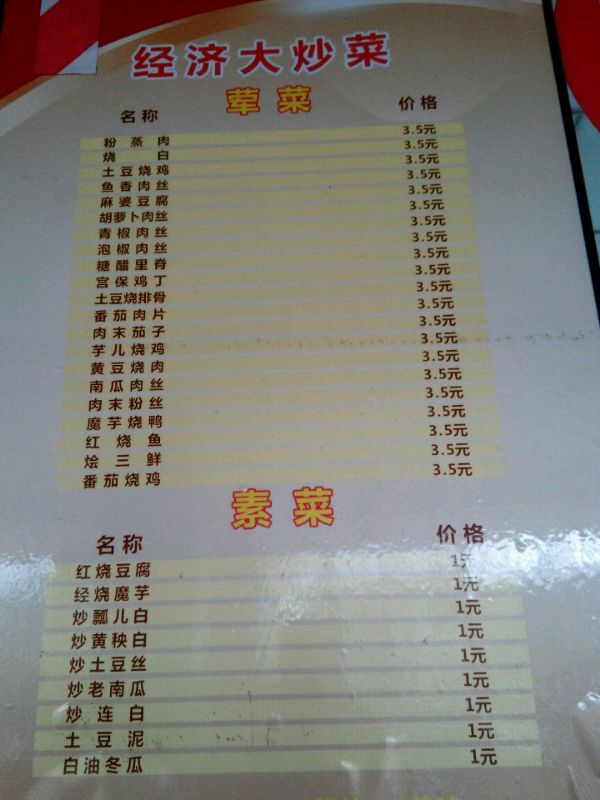 经济大炒菜
荤菜
名称 价格
粉蒸肉 3.5元
烧白 3.5元
土豆烧鸡 3.5元
鱼香肉丝 3.5元
麻婆豆腐 3.5元
胡萝卜肉丝 3.5元
青椒肉丝 3.5元
泡椒肉丝 3.5元
糖醋里脊 3.5元
宫保鸡丁 3.5元
土豆烧排骨 3.5元
番茄肉片 3.5元
肉末茄子 3.5元
芋儿烧鸡 3.5元
黄豆烧肉 3.5元
南瓜肉丝 3.5元
肉末粉丝 3.5元
魔芋烧鸭 3.5元
红烧鱼 3.5元
烩三鲜 3.5元
番茄烧鸡 3.5元
素菜
名称 价格
红烧豆腐 1元
经烧魔芋 1元
炒瓢儿白 1元
炒黄秧白 1元
炒土豆丝 1元
炒老南瓜 1元
炒连白 1元
土豆泥 1元
白油冬瓜 1元